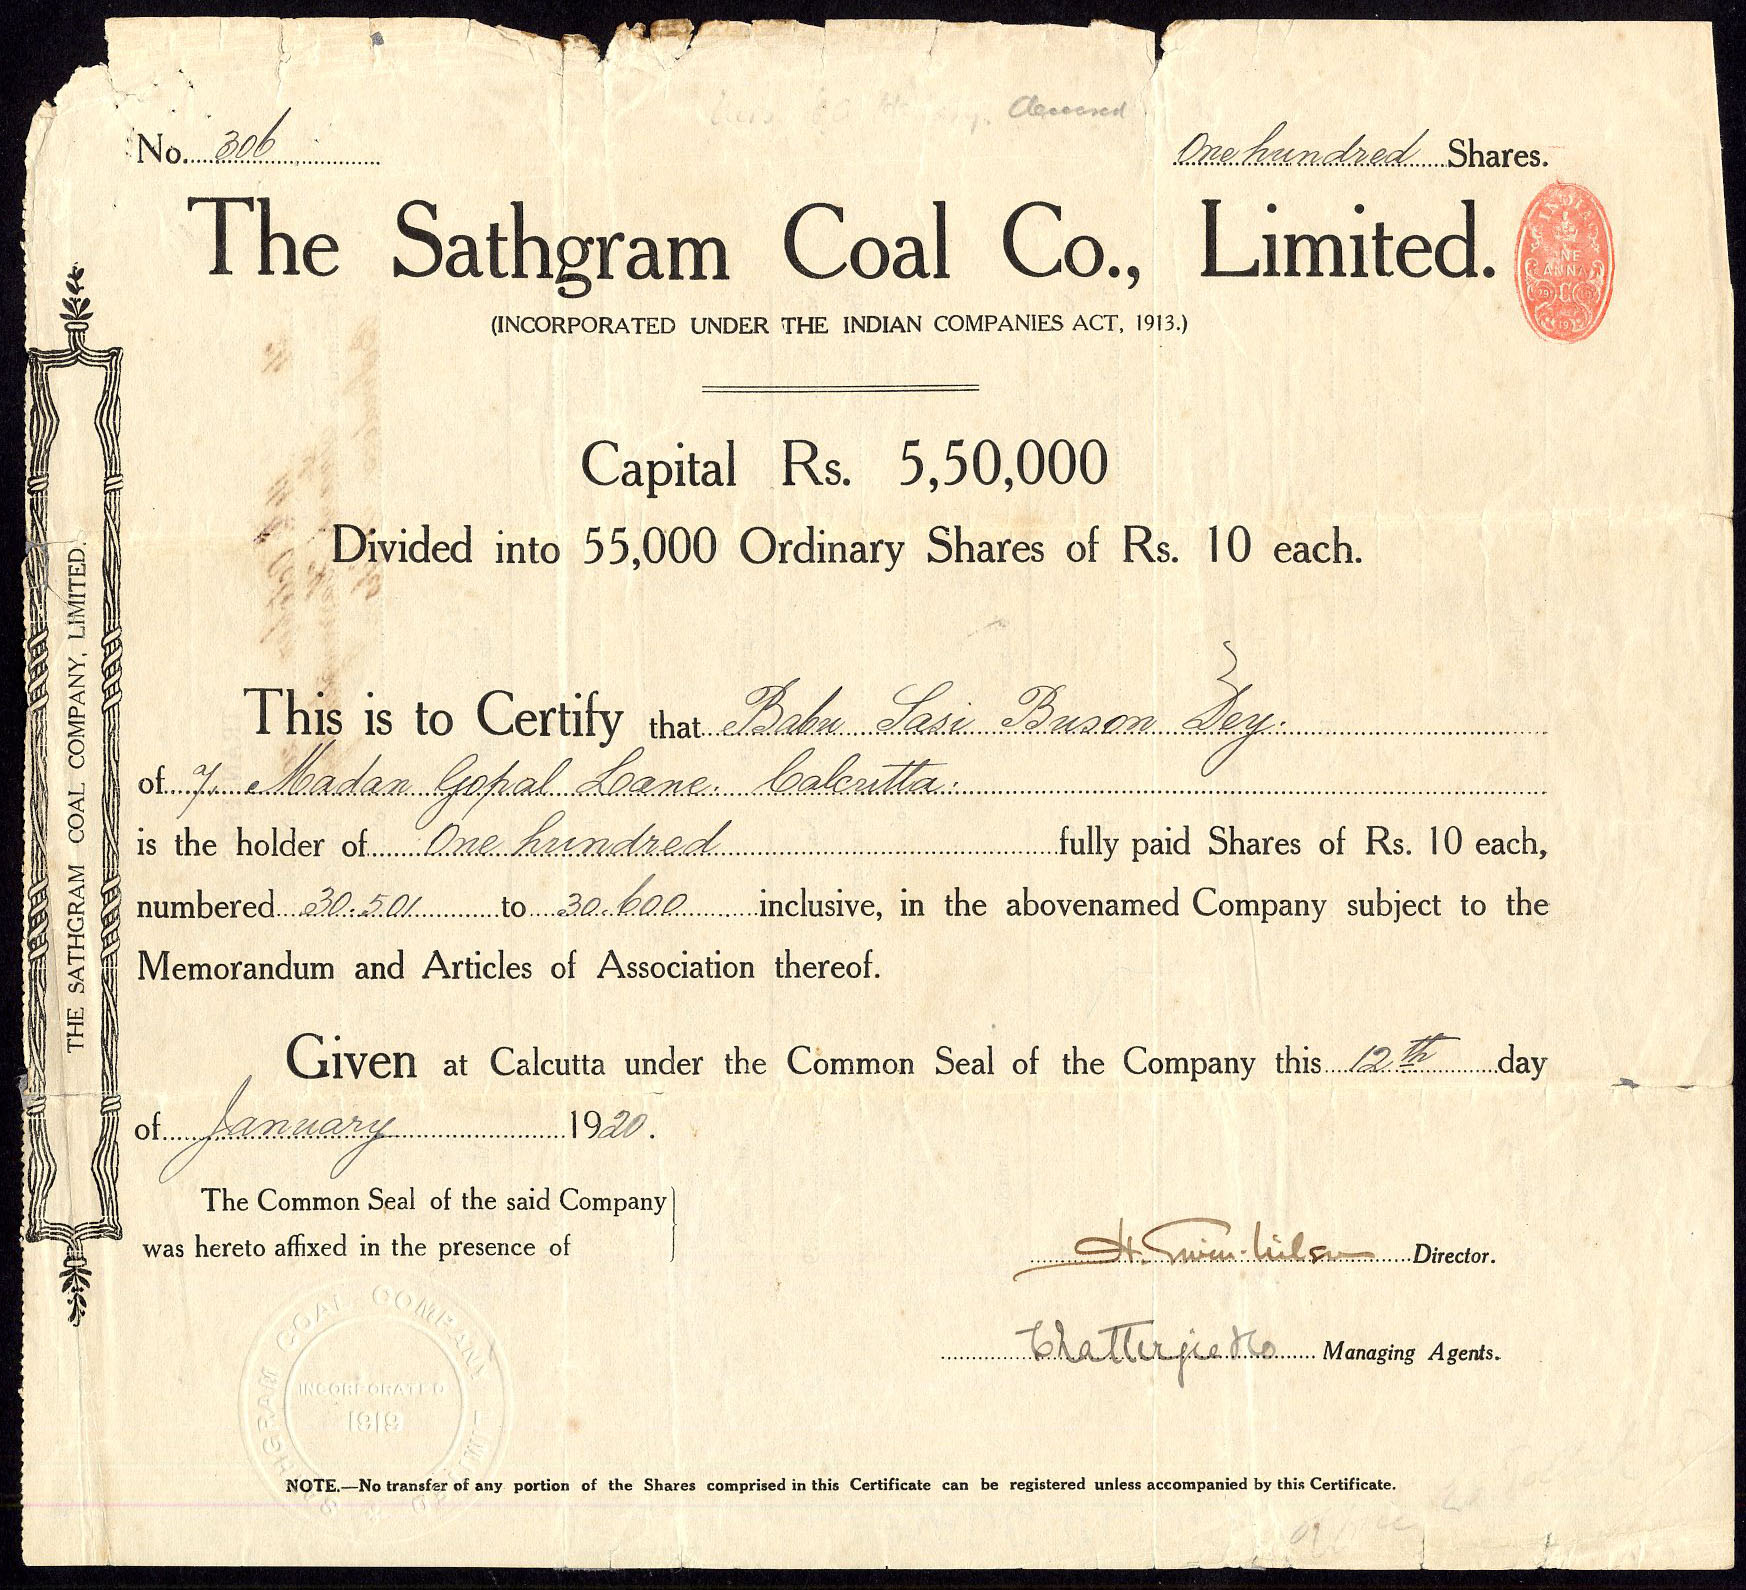 deceased
No. 306 One hundred Shares.
The Sathgram Coal Co., Limited.
(INCORPORATED UNDER THE INDIAN COMPANIES ACT, 1913.)
INDIA
ONE
ANNA
Capital Rs. 5,50,000
Divided into 55,000 Ordinary Shares of Rs. 10 each.
This is to Certify that Babu Sasi Buson Dey.
of 7, Madan Gopal Lane. Calcutta.
is the holder of One hundred fully paid Shares of Rs. 10 each,
numbered 30.501 to 30.600 inclusive, in the abovenamed Company subject to the
Memorandum and Articles of Association thereof.
Given at Calcutta under the Common Seal of the Company this 12th day
of January 1920.
The Common Seal of the said Company
was hereto affixed in the presence of
Director.
Chatterjee & Co Managing Agents.
SATHGRAM COAL COMPANY LIMITED
INCORPORATED
1919
NOTE.—No transfer of any portion of the Shares comprised in this Certificate can be registered unless accompanied by this Certificate.
THE SATHGRAM COAL COMPANY, LIMITED.